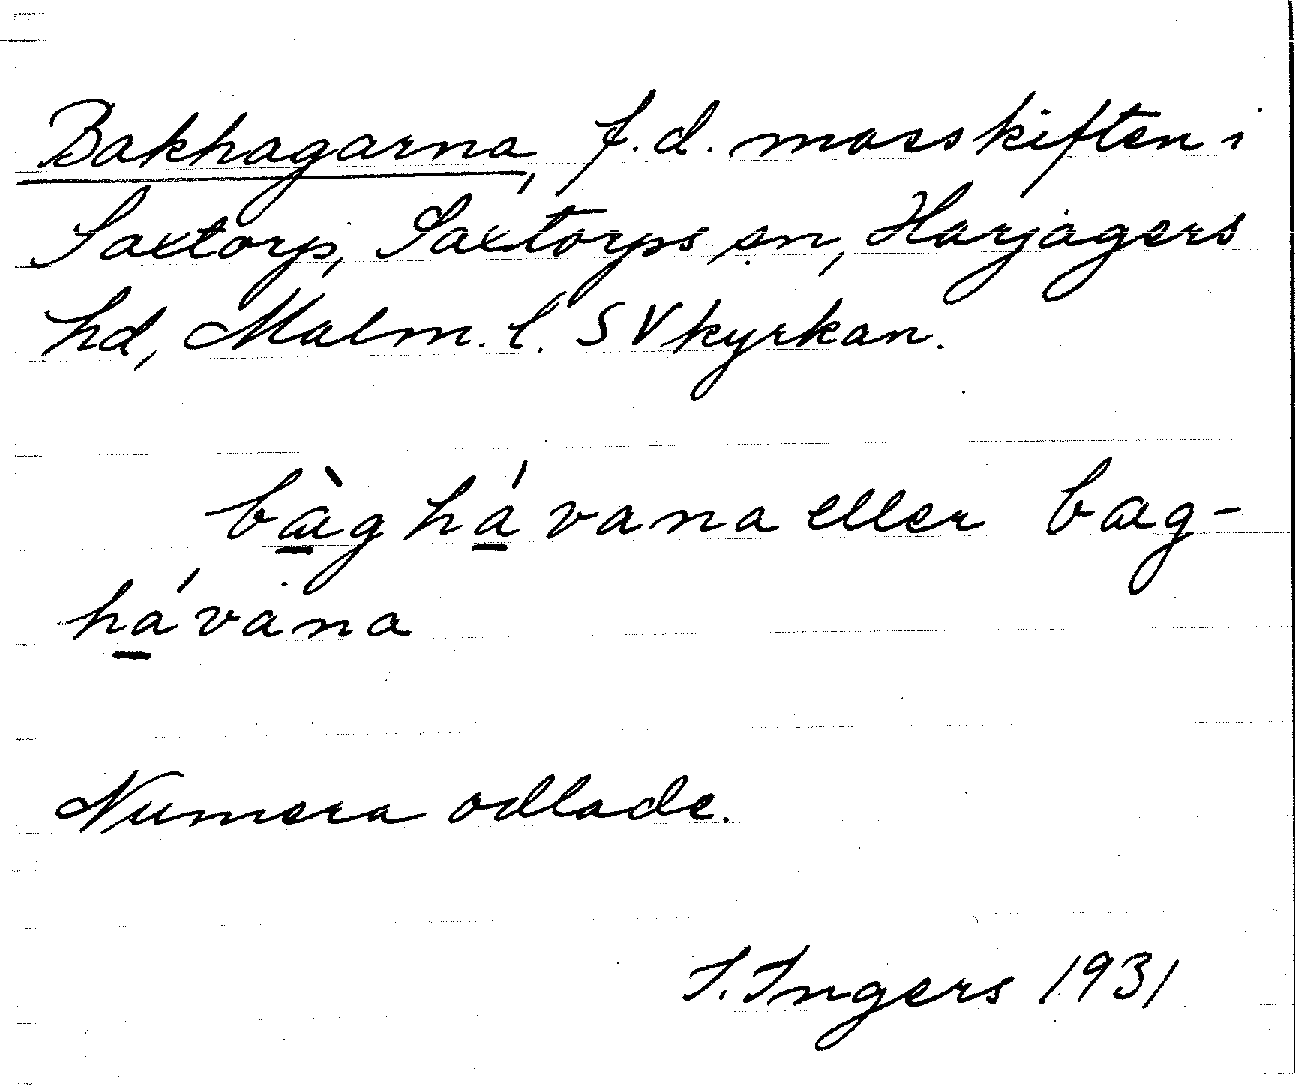 Bakhagarna, f.d. mosskiften i
Saxtorp, Saxtorps sn, Harjagers
hd, Malm. l. SV kyrkan.
bàghávana eller bag-
hávana
Numera odlade.
I. Ingers 1931